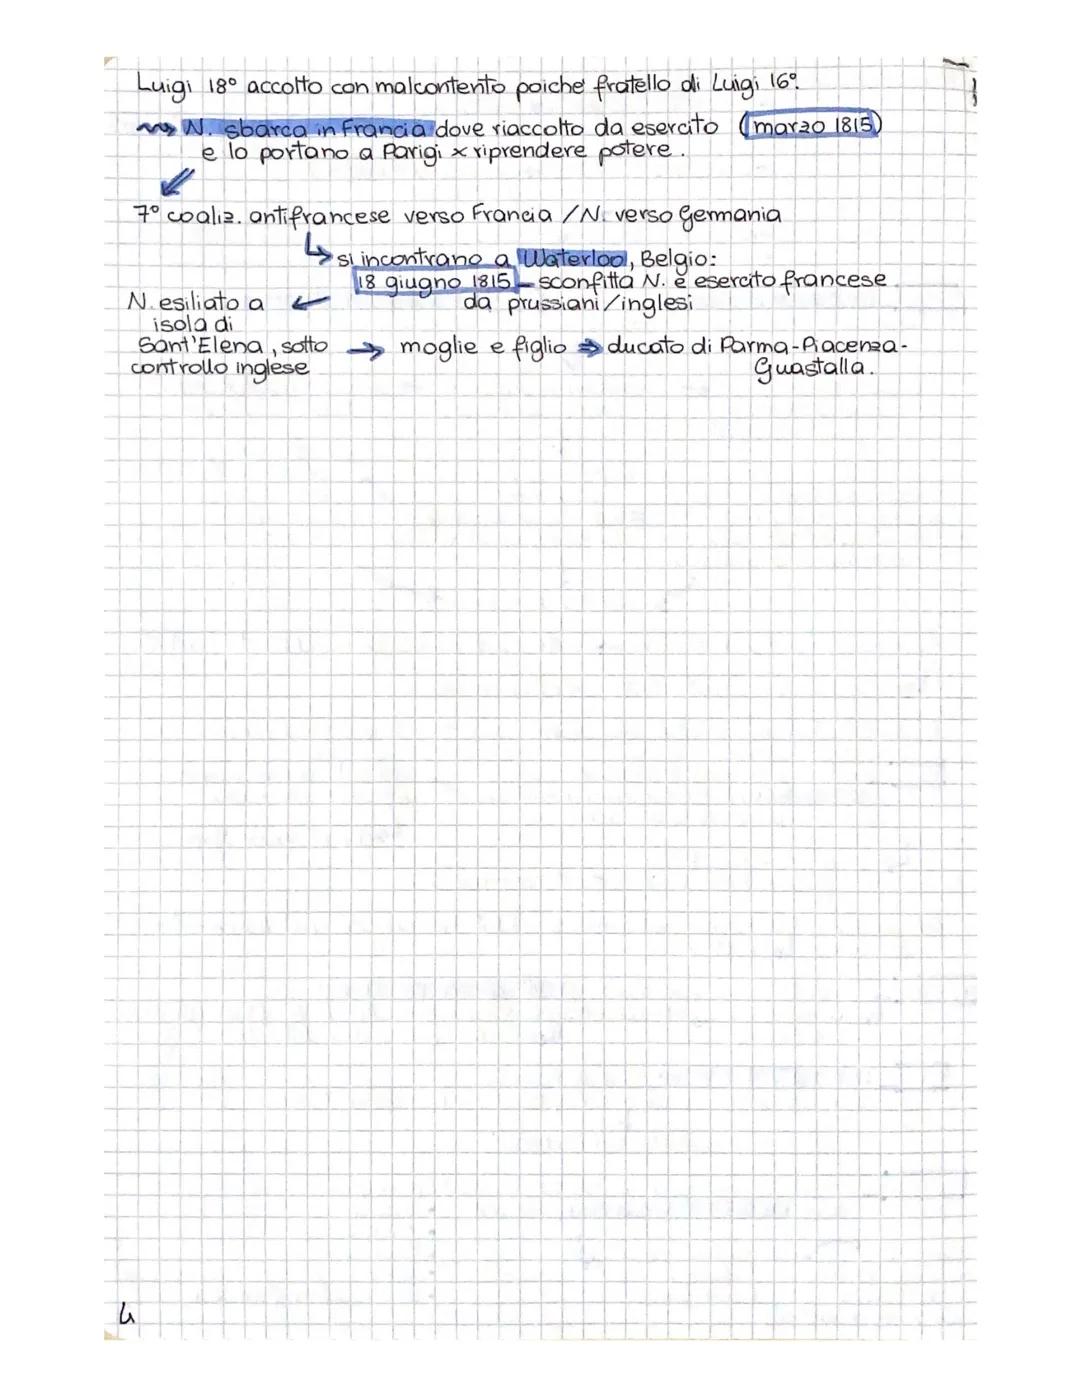 Luigi 18° accolto con malcontento poiche' fratello di Luigi 16°.
N. sbarca in Francia dove riaccolto da esercito (marzo 1815)
e lo portano a Parigi x riprendere potere.
7° coaliz. antifrancese verso Francia / N. verso Germania
si incontrano a Waterloo, Belgio:
18 giugno 1815 - sconfitta N. e esercito francese
da prussiani/inglesi
N. esiliato a
isola di
Sant'Elena, sotto
controllo inglese
→ moglie e figlio ⇒ ducato di Parma-Piacenza-
Guastalla.
4